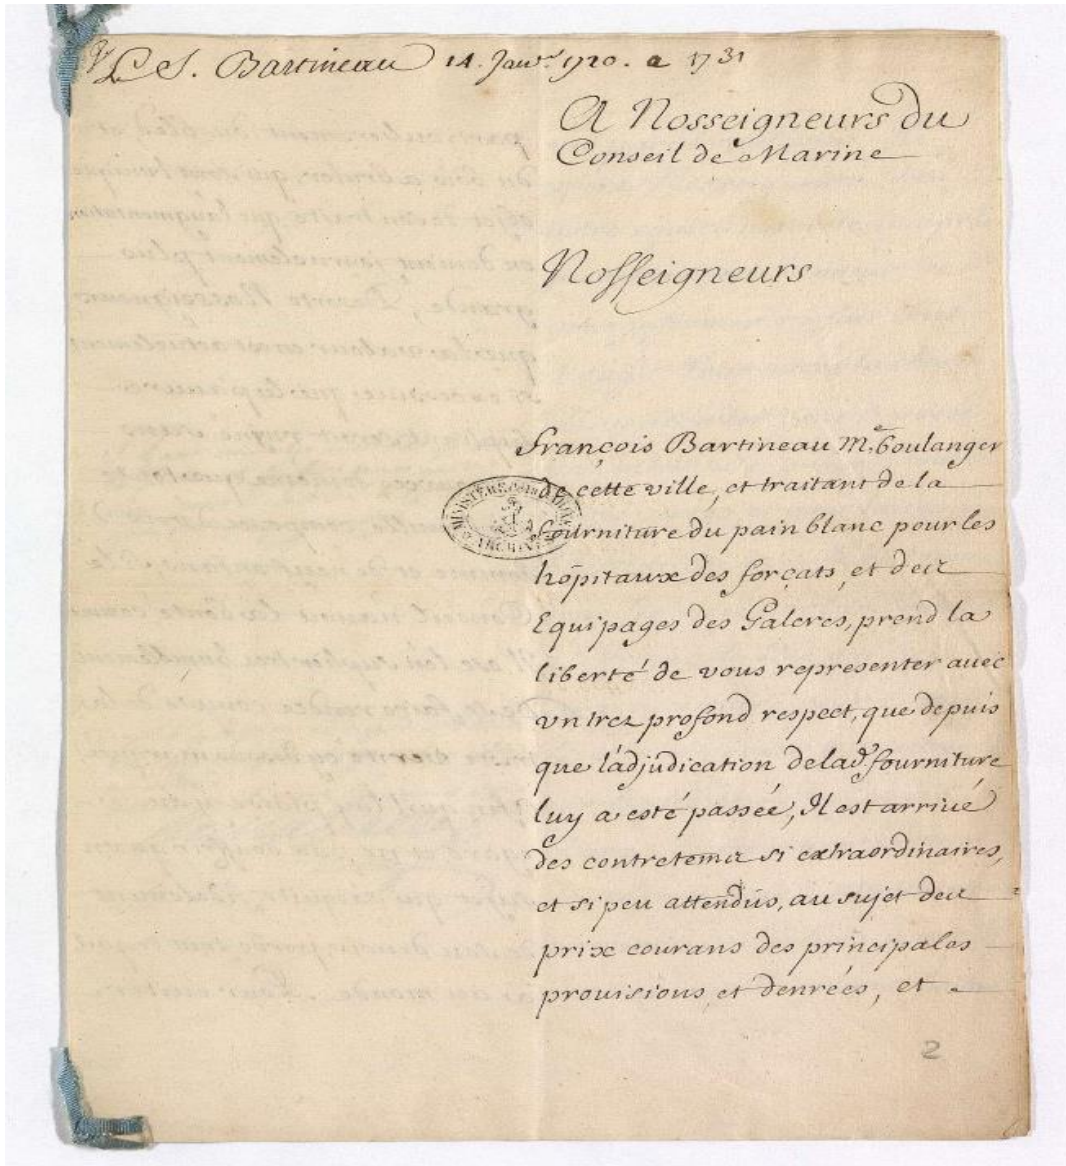 Le S. Bartineau 14. Janv.r 1720. a 1731
A Nosseigneurs du
Conseil de Marine
Nosseigneurs
François Bartineau M.e boulanger
de cette ville, et traitant de la
fourniture du pain blanc pour les
hôpitaux des forçats, et des
Equipages des Galeres, prend la
liberté de vous representer avec
vn trez profond respect, que depuis
que l'adjudication de lad.e fourniture
luy a esté passée, Il est arrivé
des contretems si extraordinaires,
et si peu attendus, au sujet des
prix courans des principales
provisions et denrées, et
MINISTERE DE LA MARINE
ARCHIVES
2